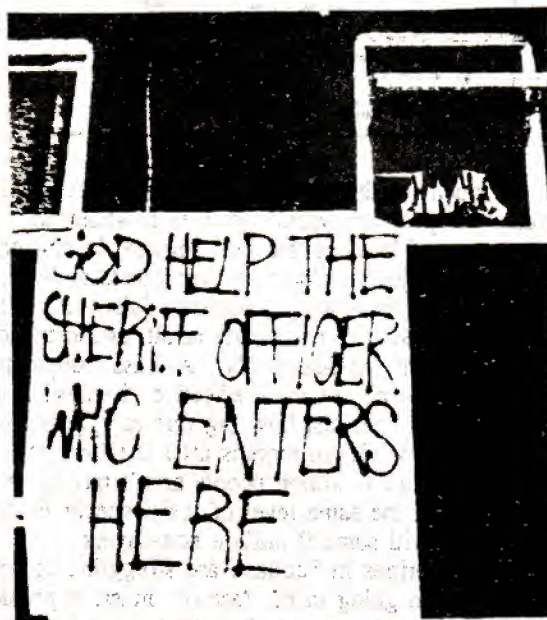 GOD HELP THE
SHERIFF OFFICER
WHO ENTERS
HERE